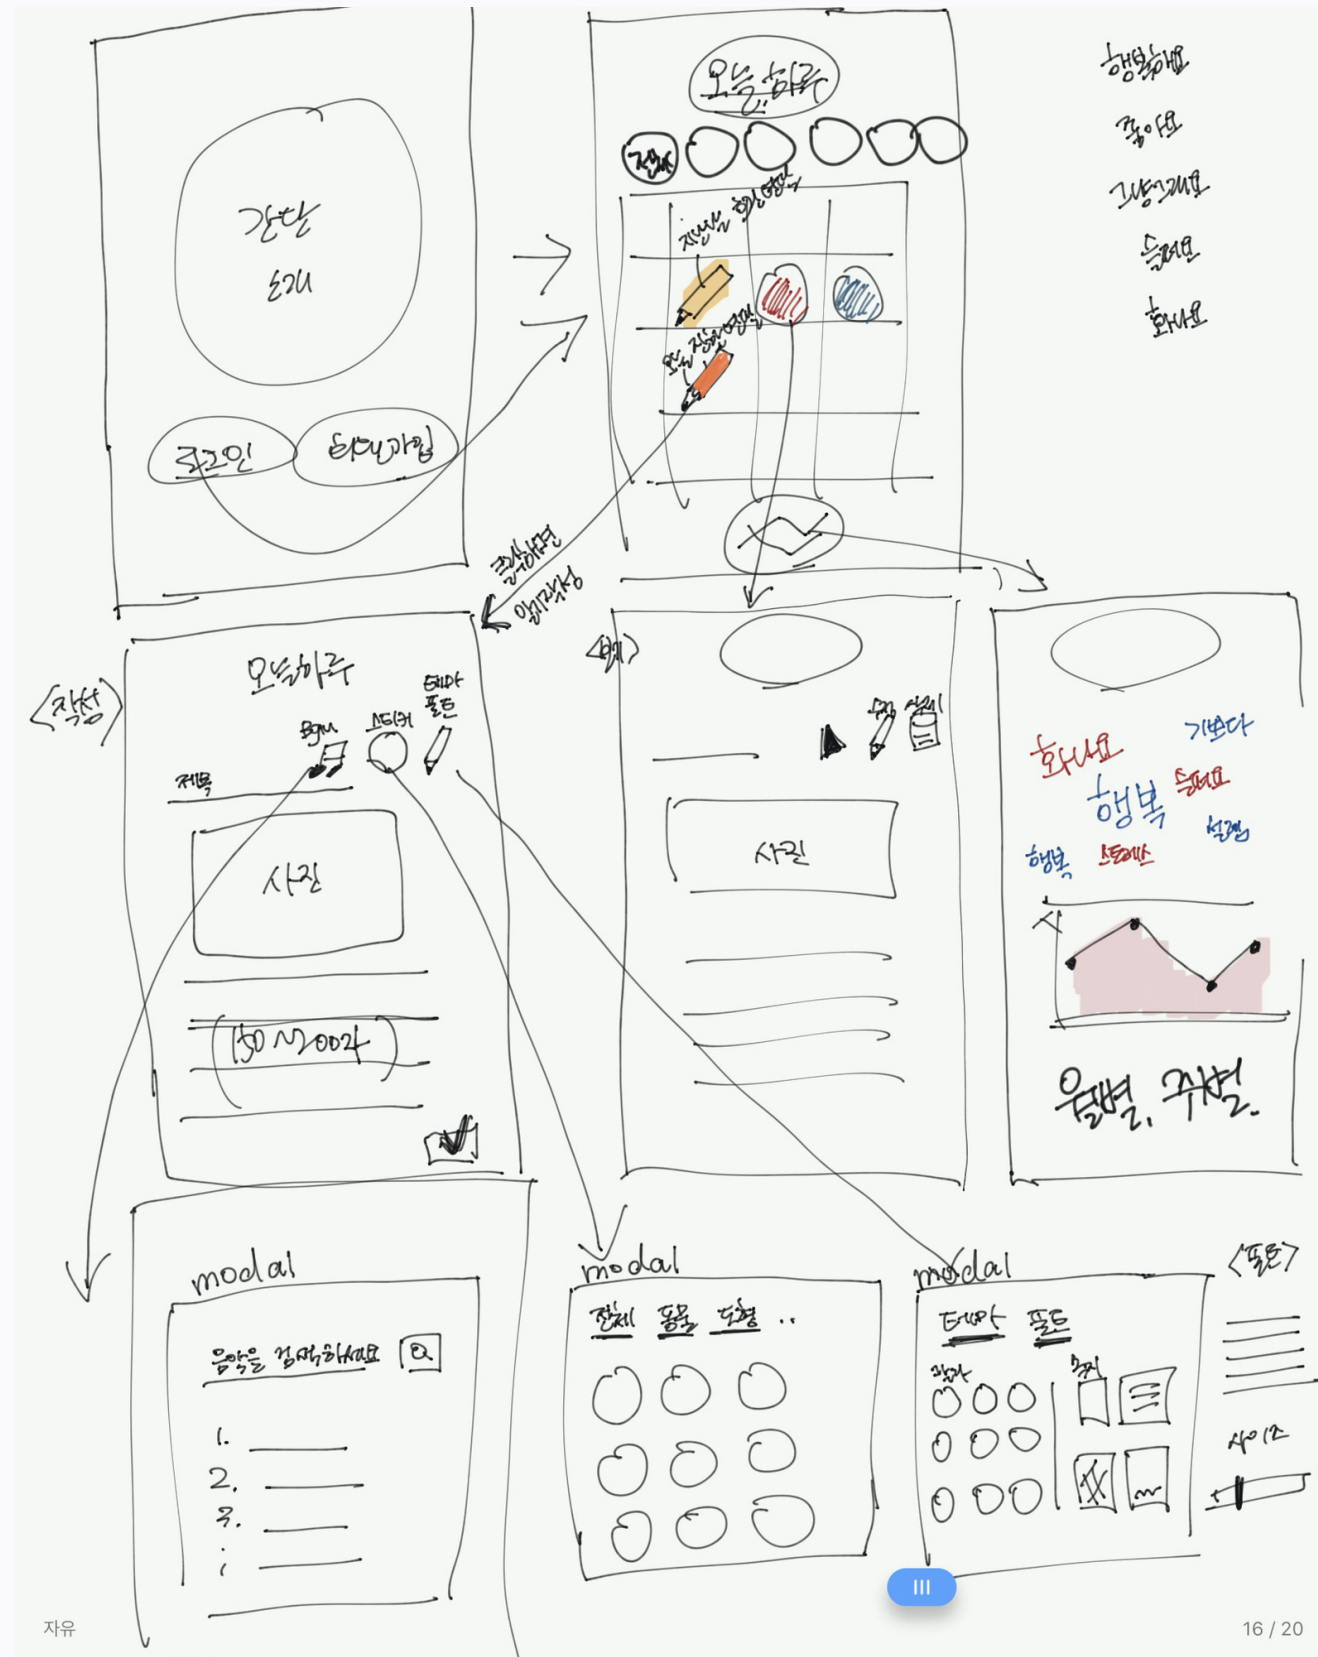 간단
소개
로그인
회원가입
오늘, 하루
전체
지난날 흰 연필
오늘 진한 연필
행복해요
좋아요
그냥그래요
슬퍼요
화나요
클릭하면
일기작성
<작성>
오늘하루
Bgm
스티커
테마
폰트
제목
사진
(150~200자)
<보기>
수정
삭제
사진
화나요
기쁘다
행복
슬퍼요
설렘
행복
스트레스
월별, 주별.
modal
음악을 검색하세요
1.
2.
3.
modal
전체 동물 도형 ..
modal
테마 폰트
속지
<폰트>
사이즈
자유
16 / 20